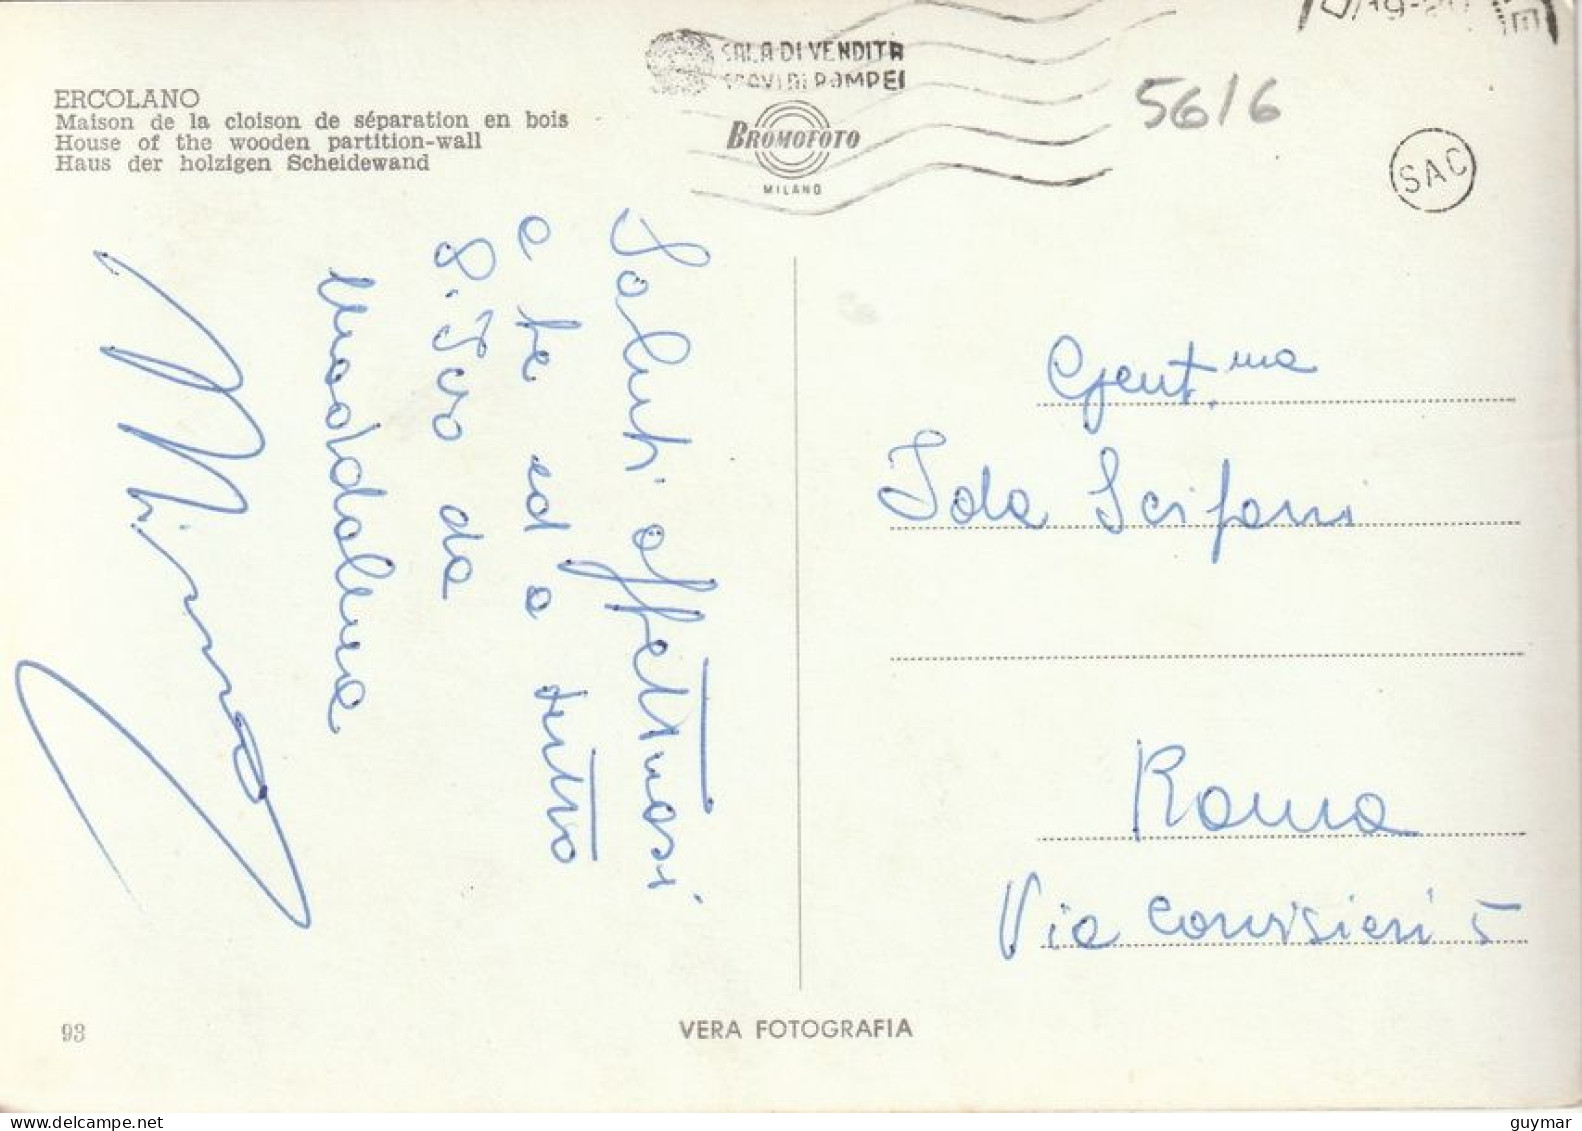 ERCOLANO
Maison de la cloison de séparation en bois
House of the wooden partition-wall
Haus der holzigen Scheidewand
SALA DI VENDITA
SCAVI DI POMPEI
BROMOFOTO
MILANO
19-20
5616
SAC
Saluti affettuosi
e te ed a tutto
da
Maddalena
Mirra
Gent.ma
Ida Scifoni
Roma
Via Corvisieri 5
93
VERA FOTOGRAFIA
guymar